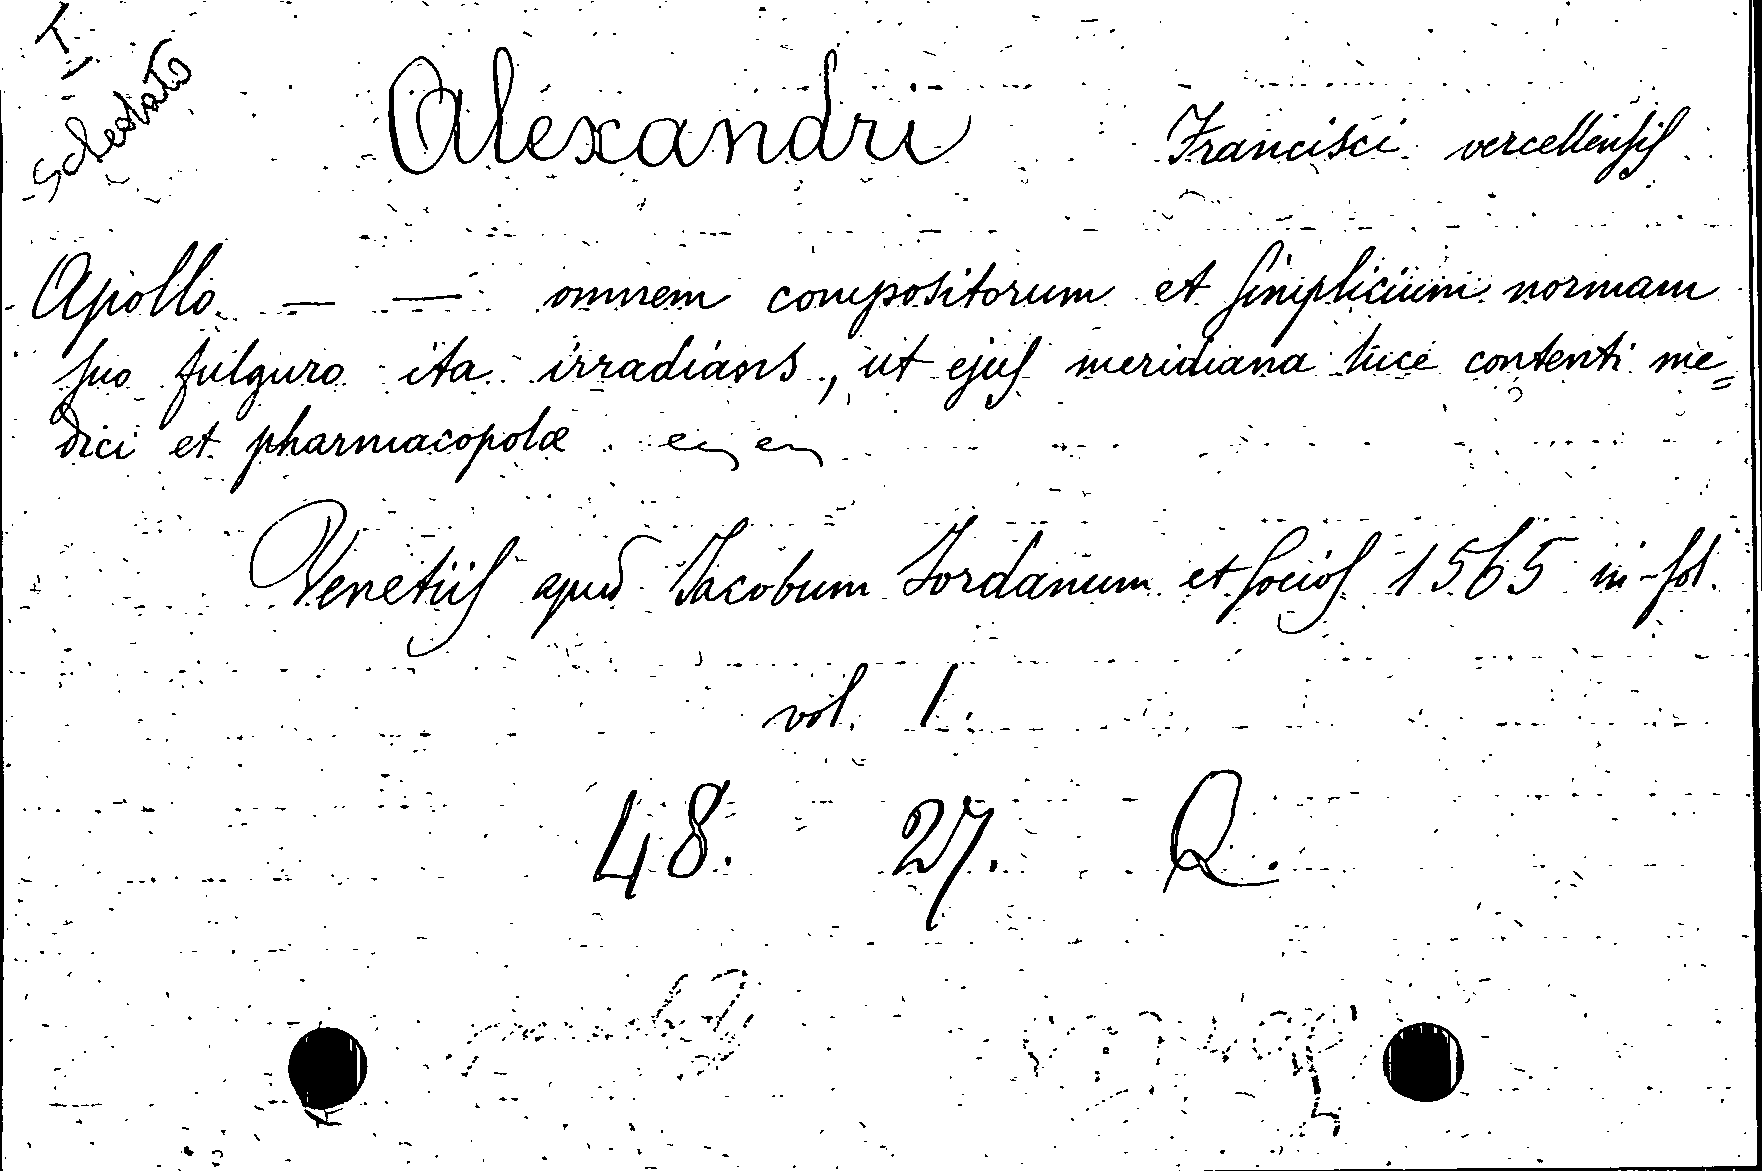 I
Schedato
Alexandri Francisci vercellensis
Apollo — — omnem compositorum et simplicium normam
suo fulguro ita irradians, ut ejus meridiana luce contenti me=
dici et pharmacopolæ
Venetiis apud Jacobum Jordanum et socios 1565 in-fol.
vol. 1.
48. 27. Q.